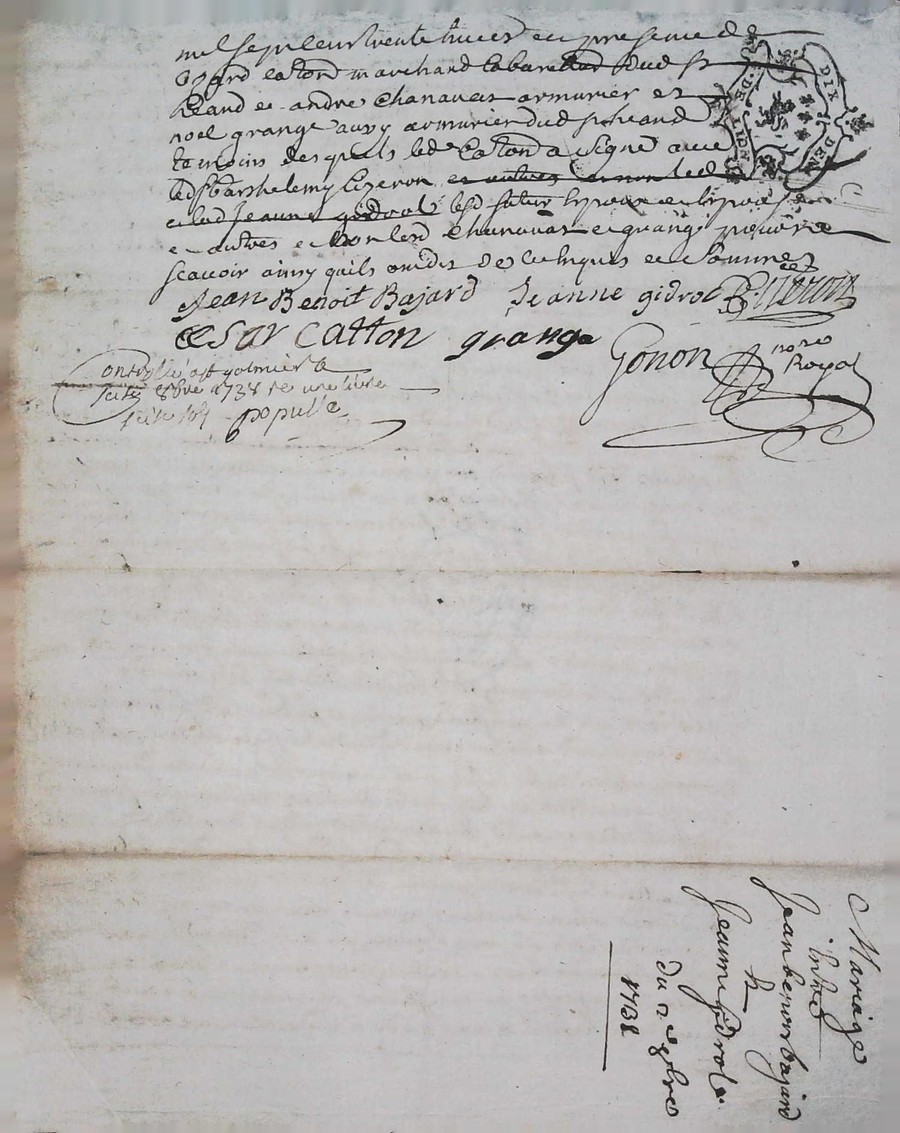 mil sept cent trente huict en presence de
Cezard Caton marchand cabaretier dud st
heand et andre chanavat armurier et
noel grange aussy armurier dud st heand
temoins desquels led Caton a signé avec
led st barthelemy et autres
et lad Jeanne gidrol lesd futur Epoux et Epouse
et autres et non led Chanavat et grange pour ne
scavoir ainsy quils ont dit de ce Enquis et Sommez
Jean Benoit Bajard Jeanne gidrol
Cesar Catton grange
Gonon nore Royal
st galmier le
8bre 1738 re une livre
DIX DEN
DE
Mariage
Entre
Jean benoit bajard
Et
Jeanne gidrol
du 8bre
1738